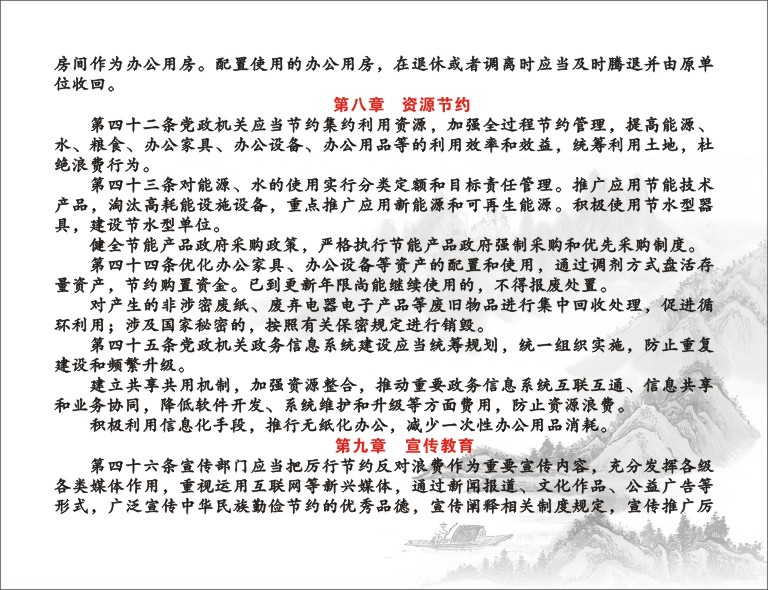 房间作为办公用房。配置使用的办公用房，在退休或者调离时应当及时腾退并由原单
位收回。
第八章　资源节约
第四十二条党政机关应当节约集约利用资源，加强全过程节约管理，提高能源、
水、粮食、办公家具、办公设备、办公用品等的利用效率和效益，统筹利用土地，杜
绝浪费行为。
第四十三条对能源、水的使用实行分类定额和目标责任管理。推广应用节能技术
产品，淘汰高耗能设施设备，重点推广应用新能源和可再生能源。积极使用节水型器
具，建设节水型单位。
健全节能产品政府采购政策，严格执行节能产品政府强制采购和优先采购制度。
第四十四条优化办公家具、办公设备等资产的配置和使用，通过调剂方式盘活存
量资产，节约购置资金。已到更新年限尚能继续使用的，不得报废处置。
对产生的非涉密废纸、废弃电器电子产品等废旧物品进行集中回收处理，促进循
环利用；涉及国家秘密的，按照有关保密规定进行销毁。
第四十五条党政机关政务信息系统建设应当统筹规划，统一组织实施，防止重复
建设和频繁升级。
建立共享共用机制，加强资源整合，推动重要政务信息系统互联互通、信息共享
和业务协同，降低软件开发、系统维护和升级等方面费用，防止资源浪费。
积极利用信息化手段，推行无纸化办公，减少一次性办公用品消耗。
第九章　宣传教育
第四十六条宣传部门应当把厉行节约反对浪费作为重要宣传内容，充分发挥各级
各类媒体作用，重视运用互联网等新兴媒体，通过新闻报道、文化作品、公益广告等
形式，广泛宣传中华民族勤俭节约的优秀品德，宣传阐释相关制度规定，宣传推广厉